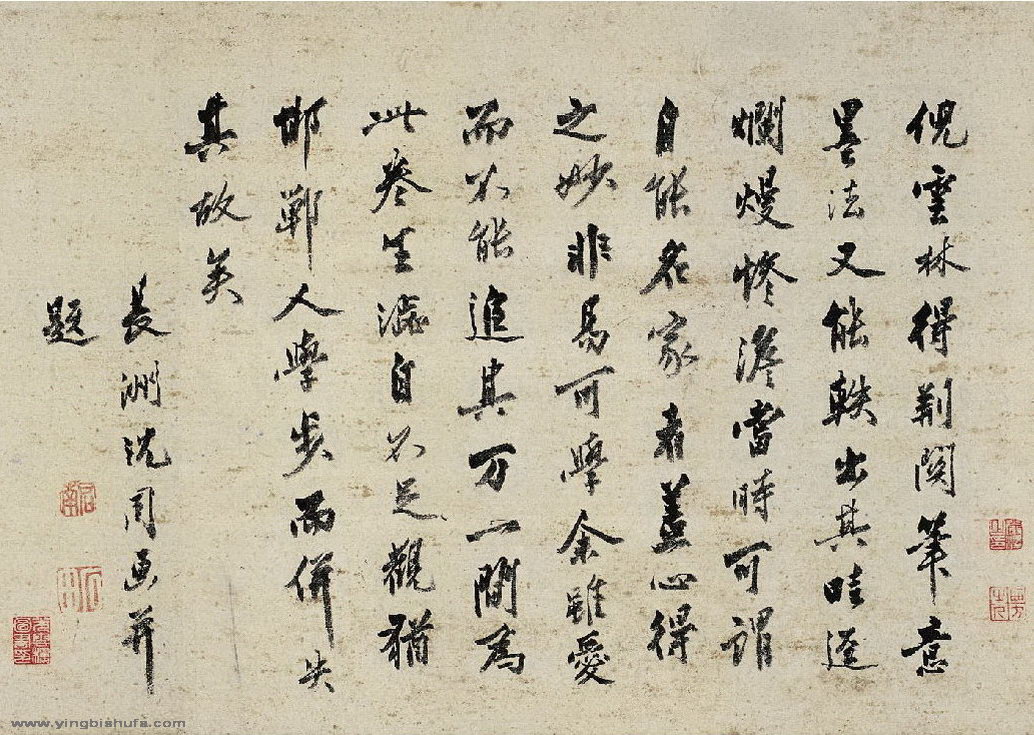 倪雲林得荆関筆意
墨法又能軼出其畦逕
爛熳惨澹當時可謂
自能名家者蓋心得
之妙非易可學余雖愛
而不能追其万一間為
此卷生澁自不足觀猶
邯鄲人學步而併失
其故矣
長洲沈周画并
題
www.yingbishufa.com